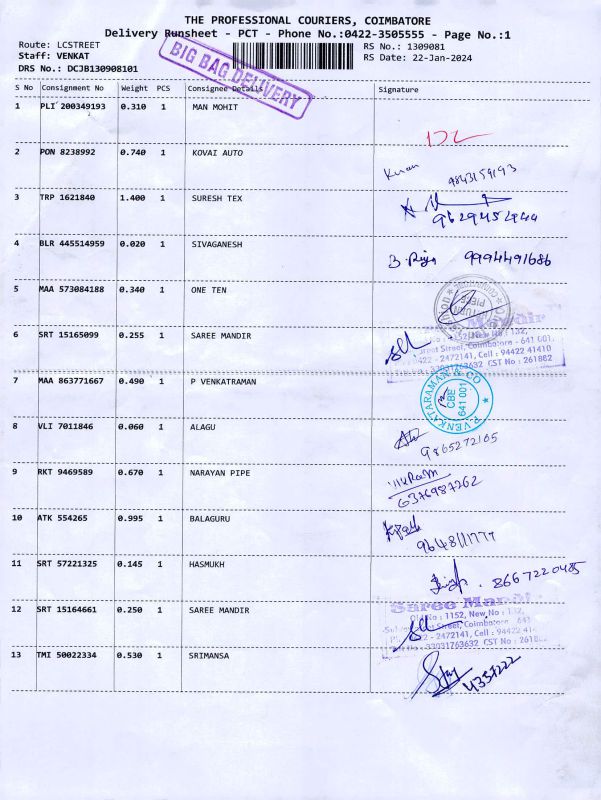 THE PROFESSIONAL COURIERS, COIMBATORE
Delivery Runsheet - PCT - Phone No.:0422-3505555 - Page No.:1
Route: LCSTREET
RS No.: 1309081
Staff: VENKAT
RS Date: 22-Jan-2024
DRS No.: DCJB130908101
BIG BAG DELIVERY
S No Consignment No Weight PCS Consignee Details Signature
1 PLI 200349193 0.310 1 MAN MOHIT
2 PON 8238992 0.740 1 KOVAI AUTO
9843159193
3 TRP 1621840 1.400 1 SURESH TEX
9629454944
4 BLR 445514959 0.020 1 SIVAGANESH
B. Priya 9994491686
5 MAA 573084188 0.340 1 ONE TEN
6 SRT 15165099 0.255 1 SAREE MANDIR
1152, New No : 132,
Street, Coimbatore - 641 001.
0422 - 2472141, Cell : 94422 41410
33031763632 CST No : 261882
7 MAA 863771667 0.490 1 P VENKATRAMAN
P. VENKATARAMAN & CO
CBE
641 001
8 VLI 7011846 0.060 1 ALAGU
9865272105
9 RKT 9469589 0.670 1 NARAYAN PIPE
6376987262
10 ATK 554265 0.995 1 BALAGURU
11 SRT 57221325 0.145 1 HASMUKH
8667220485
12 SRT 15164661 0.250 1 SAREE MANDIR
Saree Mandir
Old No : 1152, New No : 132,
Street, Coimbatore - 641
- 2472141, Cell : 94422 414
33031763632 CST No : 261882
13 TMI 50022334 0.530 1 SRIMANSA
4357222